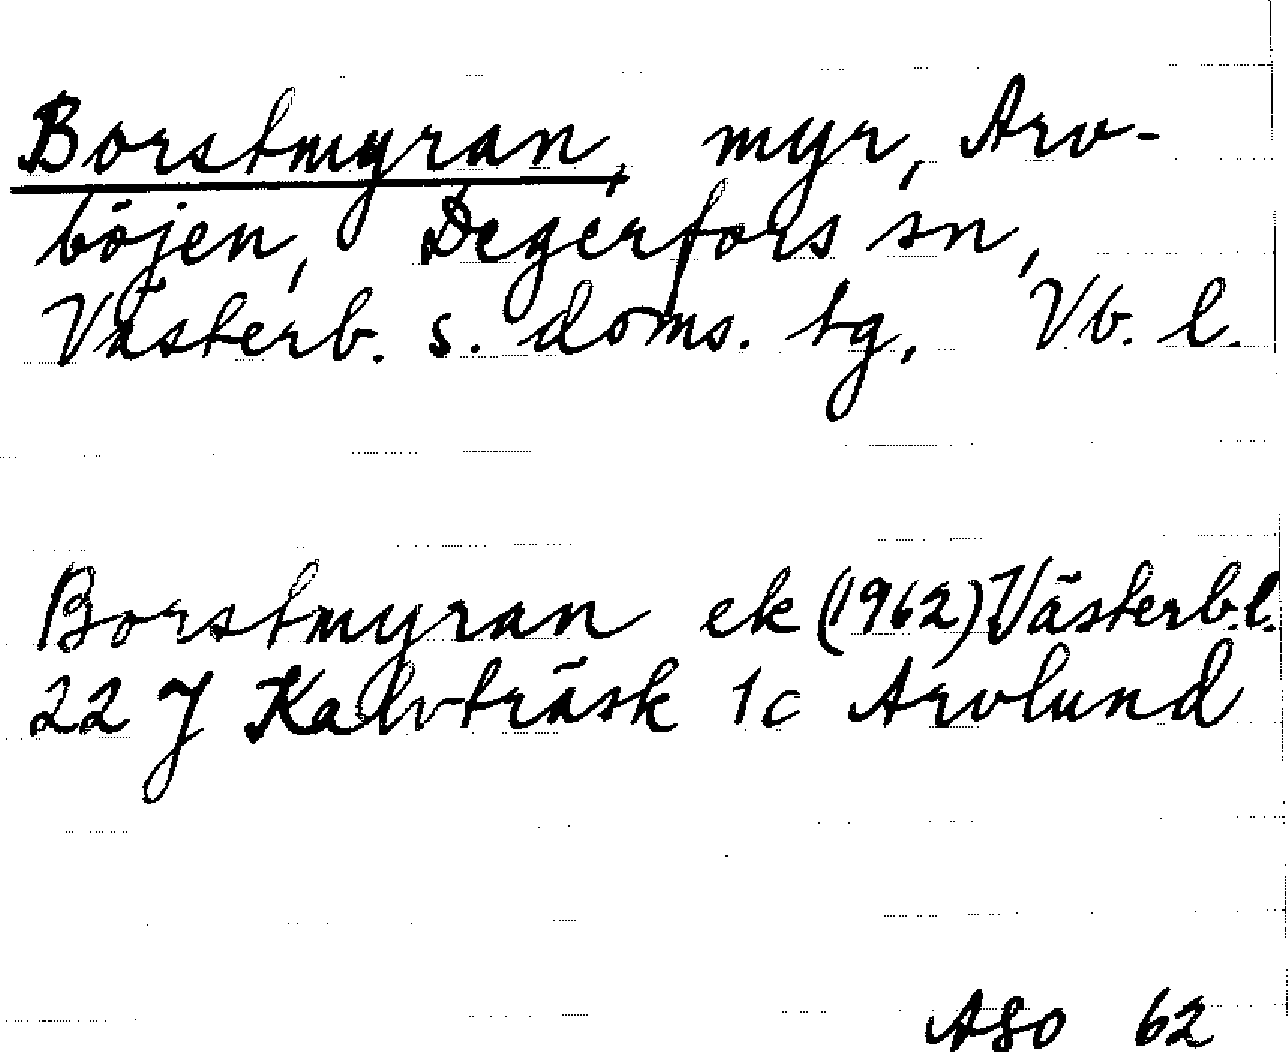 Borstmyran, myr, Arv-
böjen, Degerfors sn,
Västerb. s. doms. tg, Vb. l.
Borstmyran ek (1962) Västerb.l.
22 J Kalvträsk 1c Arvlund
ASO 62